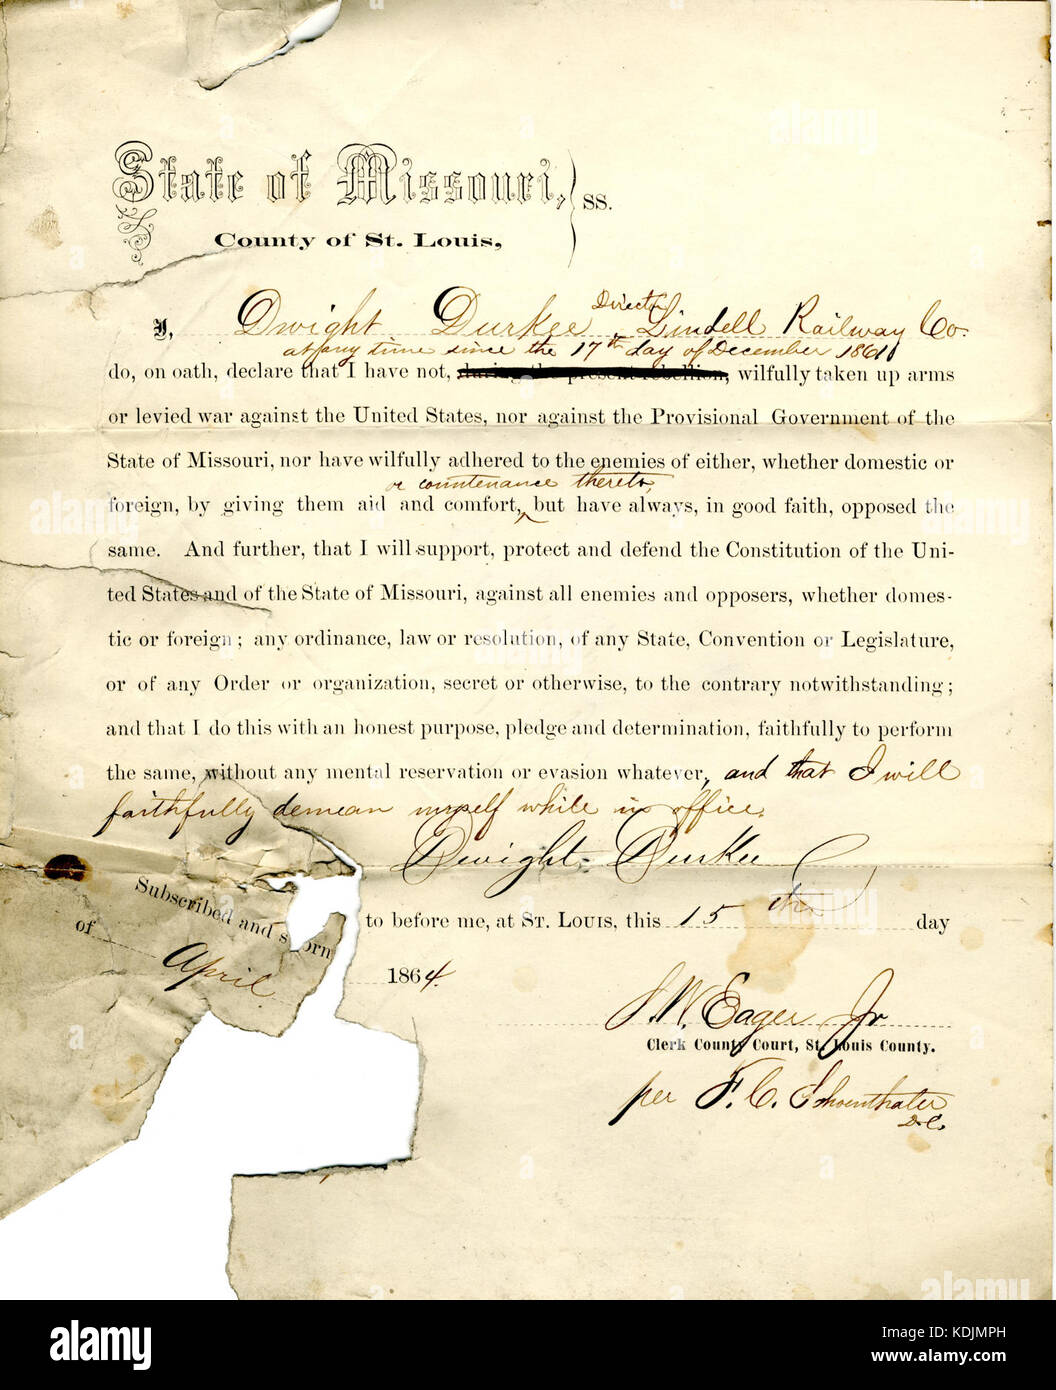 State of Missouri, } SS.
County of St. Louis,
I, Dwight Durkee, Director Lindell Railway Co.
at any time since the 17th day of December 1861
do, on oath, declare that I have not, during the present rebellion, wilfully taken up arms
or levied war against the United States, nor against the Provisional Government of the
State of Missouri, nor have wilfully adhered to the enemies of either, whether domestic or
or countenance thereto,
foreign, by giving them aid and comfort, but have always, in good faith, opposed the
same. And further, that I will support, protect and defend the Constitution of the Uni-
ted States and of the State of Missouri, against all enemies and opposers, whether domes-
tic or foreign; any ordinance, law or resolution, of any State, Convention or Legislature,
or of any Order or organization, secret or otherwise, to the contrary notwithstanding;
and that I do this with an honest purpose, pledge and determination, faithfully to perform
the same, without any mental reservation or evasion whatever, and that I will
faithfully demean myself while in office.
Dwight Durkee
Subscribed and sworn to before me, at St. Louis, this 15th day
of April 1864.
Eager Jr
Clerk County Court, St. Louis County.
per F. C. Shoenthaler
D.C.
alamy
Image ID: KDJMPH
www.alamy.com